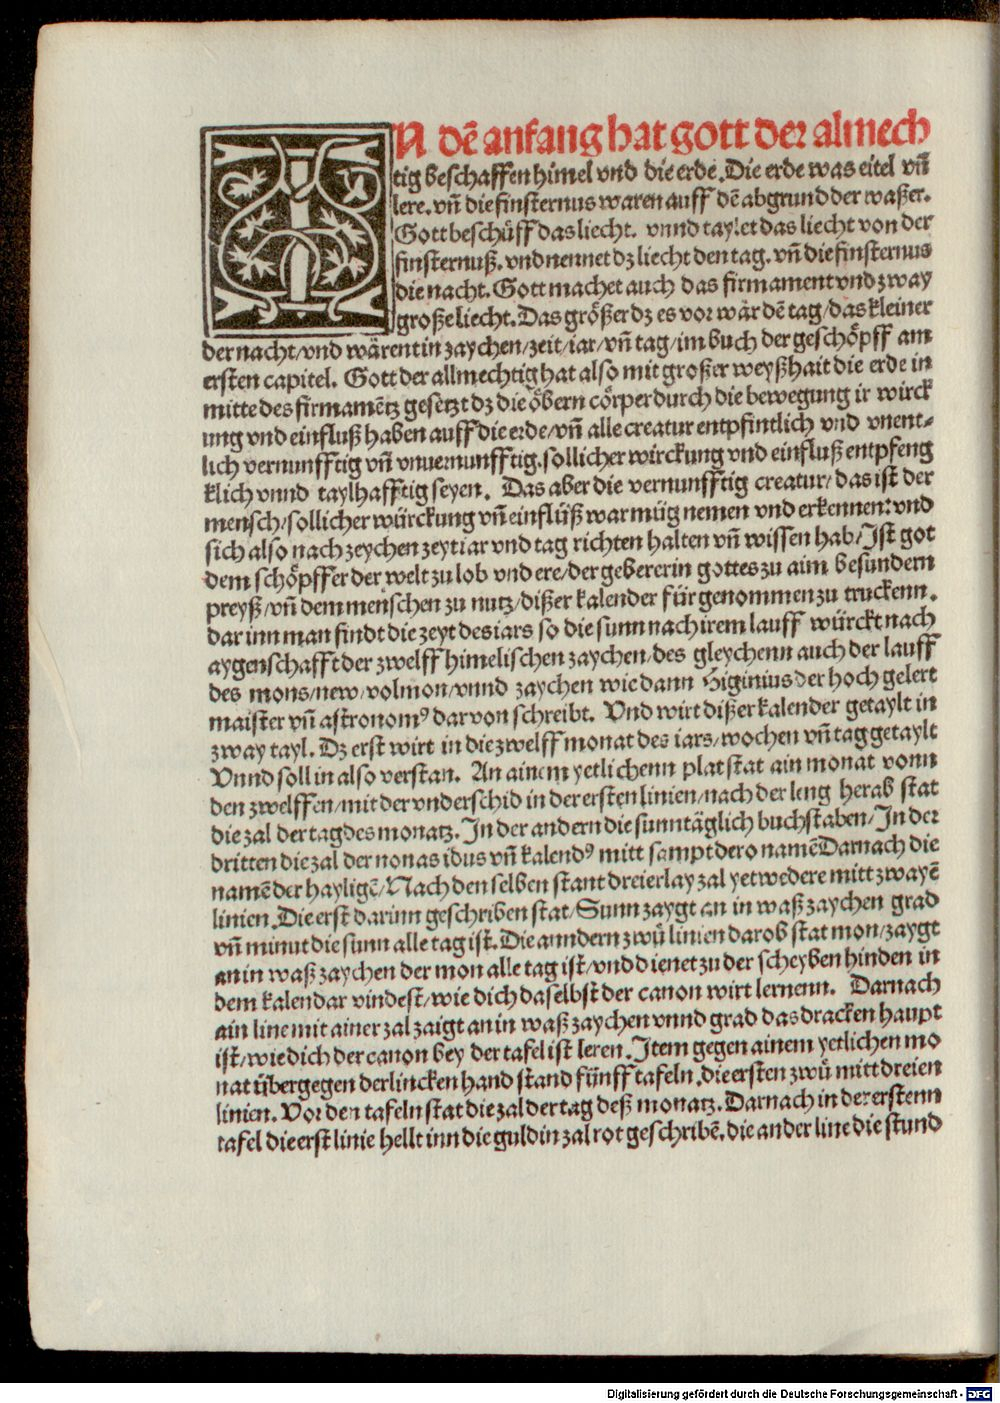 IN dē anfang hat gott der almech
tig beschaffen himel vnd die erde. Die erde was eitel vñ
lere. vñ die finsternus waren auff dē abgrund der waßer.
Gott beschůff das liecht. vnnd taylet das liecht von der
finsternuß. vnd nennet dz liecht den tag. vñ die finsternus
die nacht. Gott machet auch das firmament vnd zway
große liecht. Das größer dz es vor wär dē tag/ das kleiner
der nacht/ vnd wärent in zaychen/ zeit/ iar/ vñ tag/ im buch der geschöpff am
ersten capitel. Gott der allmechtig hat also mit großer weyßhait die erde in
mitte des firmamētz gesetzt dz die öbern cörper durch die bewegung ir wirck
ung vnd einfluß haben auff die erde/ vñ alle creatur entpfintlich vnd vnent-
lich vernunfftig vñ vnuernunfftig. sollicher wirckung vnd einfluß entpfeng
klich vnnd taylhafftig seyen. Das aber die vernunfftig creatur/ das ist der
mensch/ sollicher würckung vñ einflüß war müg nemen vnd erkennen: vnd
sich also nach zeychen zeyt iar vnd tag richten halten vñ wissen hab/ Ist got
dem schöpffer der welt zu lob vnd ere/ der gebererin gottes zu aim besundern
preyß/ vñ dem menschen zu nutz/ dißer kalender für genommen zu truckenn.
dar inn man findt die zeyt des iars so die sunn nach irem lauff würckt nach
aygenschafft der zwelff himelischen zaychen/ des gleychenn auch der lauff
des mons/ new/ volmon/ vnnd zaychen wie dann Higinius der hoch gelert
maister vñ astronomꝰ dar von schreibt. Vnd wirt dißer kalender getaylt in
zway tayl. Dz erst wirt in die zwelff monat des iars/ wochen vñ tag getaylt
Vnnd soll in also verstan. An ainem yetlichenn plat stat ain monat vonn
den zwelffen/ mit der vnderschid in der ersten linien/ nach der leng herab stat
die zal der tag des monatz. In der andern die sunntäglich buchstaben/ In der
dritten die zal der nonas idus vñ kalendꝰ mitt sampt dero namē Darnach die
namē der hayligē/ Nach den selben stant dreierlay zal yetwedere mitt zwayē
linien. Die erst darinn geschriben stat/ Sunn zaygt an in waß zaychen grad
vñ minut die sunn alle tag ist. Die anndern zwů linien darob stat mon/ zaygt
an in waß zaychen der mon alle tag ist/ vnd dienet zu der scheyben hinden in
dem kalendar vindest/ wie dich daselbst der canon wirt lernenn. Darnach
ain line mit ainer zal zaigt an in waß zaychen vnnd grad das dracken haupt
ist/ wie dich der canon bey der tafel ist leren. Item gegen ainem yetlichen mo
nat über gegen der lincken hand stand fünff tafeln. die ersten zwů mitt dreien
linien. Vor den tafeln stat die zal der tag deß monatz. Darnach in der erstenn
tafel die erst linie hellt inn die guldin zal rot geschribē. die ander line die stund
Digitalisierung gefördert durch die Deutsche Forschungsgemeinschaft - DFG